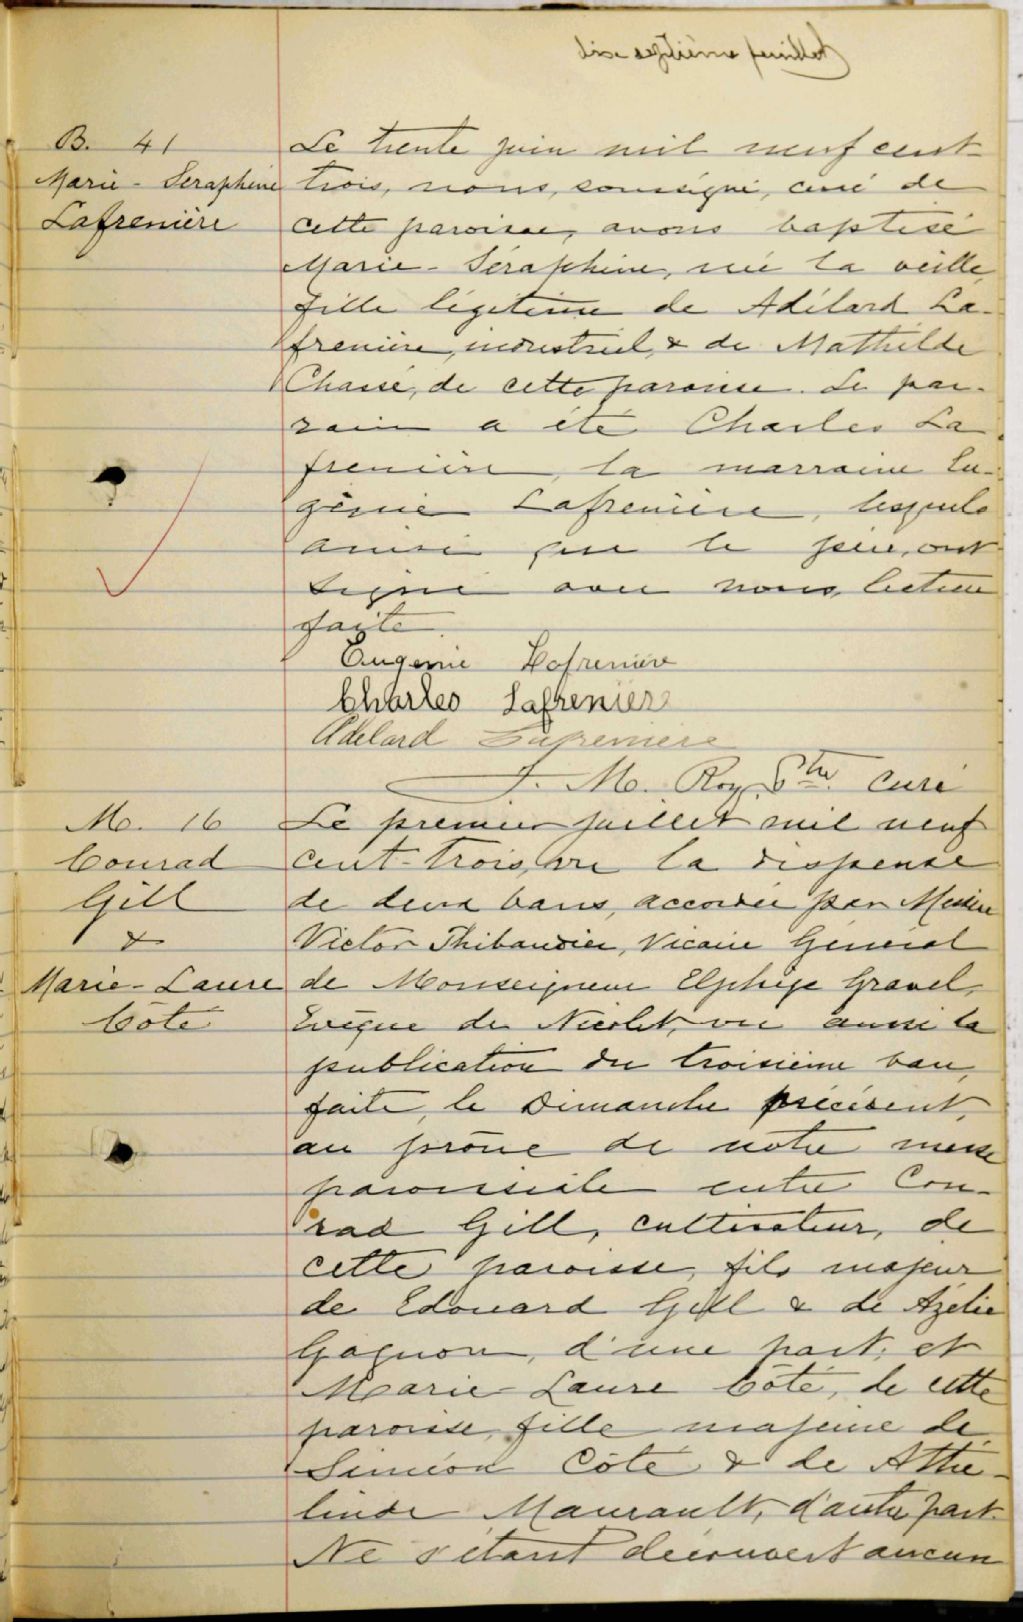 B. 41
Marie-Seraphine
Lafrenière
Le trente juin mil neuf cent
trois, nous, soussigné, curé de
cette paroisse, avons baptisé
Marie-Séraphine, née la veille,
fille légitime de Adélard La-
frenière, industriel, & de Mathilde
Chassé, de cette paroisse. Le par-
rain a été Charles La
frenière, la marraine Eu-
génie Lafrenière, lesquels
ainsi que le père, ont
signé avec nous, lecture
faite.
Eugenie Lafreniere
Charles Lafreniere
Adelard Lafreniere
J. M. Roy Ptre Curé
M. 16
Conrad
Gill
&
Marie-Laure
Côté
Le premier juillet mil neuf
cent-trois, vu la dispense
de deux bans, accordée par Messire
Victor Thibaudier, Vicaire Général
de Monseigneur Elphège Gravel,
Evêque de Nicolet, vu aussi la
publication du troisième ban,
faite, le Dimanche précédent,
au prône de notre messe
paroissiale entre Con-
rad Gill, cultivateur, de
cette paroisse, fils majeur
de Edouard Gill & de Azélie
Gagnon, d'une part; et
Marie-Laure Côté, de cette
paroisse, fille majeure de
Siméon Côté & de
Maurault, d'autre part.
Ne s'étant découvert aucun